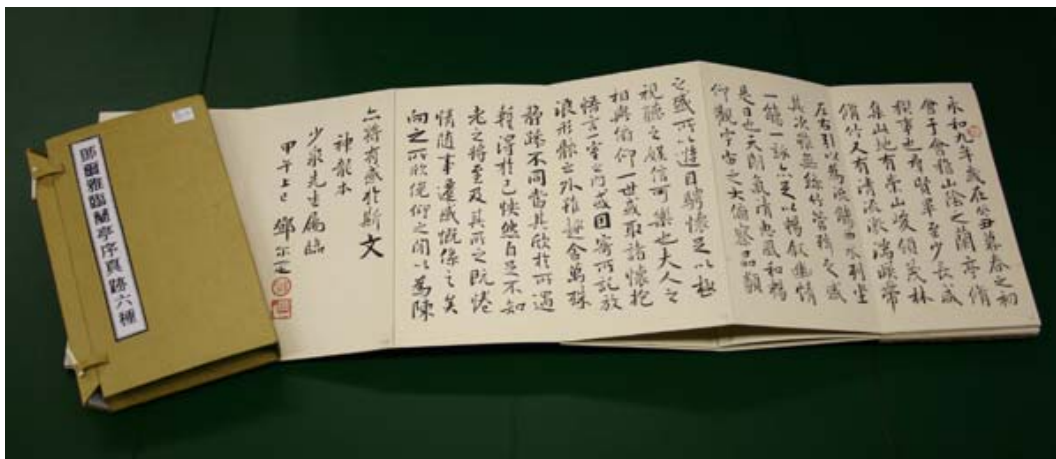 永和九年歲在癸丑暮春之初
會于會稽山陰之蘭亭脩
禊事也群賢畢至少長咸
集此地有崇山峻領茂林
脩竹又有清流激湍暎帶
左右引以為流觴曲水列坐
其次雖無絲竹管弦之盛
一觴一詠亦足以暢敘幽情
是日也天朗氣清惠風和暢
仰觀宇宙之大俯察品類
之盛所以遊目騁懷足以極
視聽之娛信可樂也夫人之
相與俯仰一世或取諸懷抱
悟言一室之內或因寄所託放
浪形骸之外雖趣舍萬殊
靜躁不同當其欣於所遇
暫得於己怏然自足不知
老之將至及其所之既惓
情隨事遷感慨係之矣
向之所欣俛仰之閒以為陳
亦將有感於斯文
神龍本
少泉先生屬臨
甲午上巳 鄧尔疋
鄧爾雅臨蘭亭序真跡六種